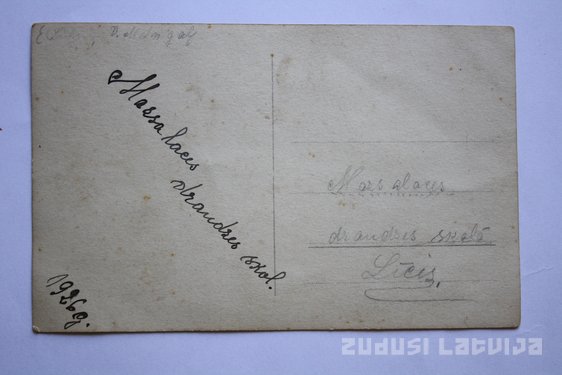 Massalaces
draudzes skol.
1926g.
Mazsalaces
draudzes skolā
Līcis
ZUDUSI LATVIJA